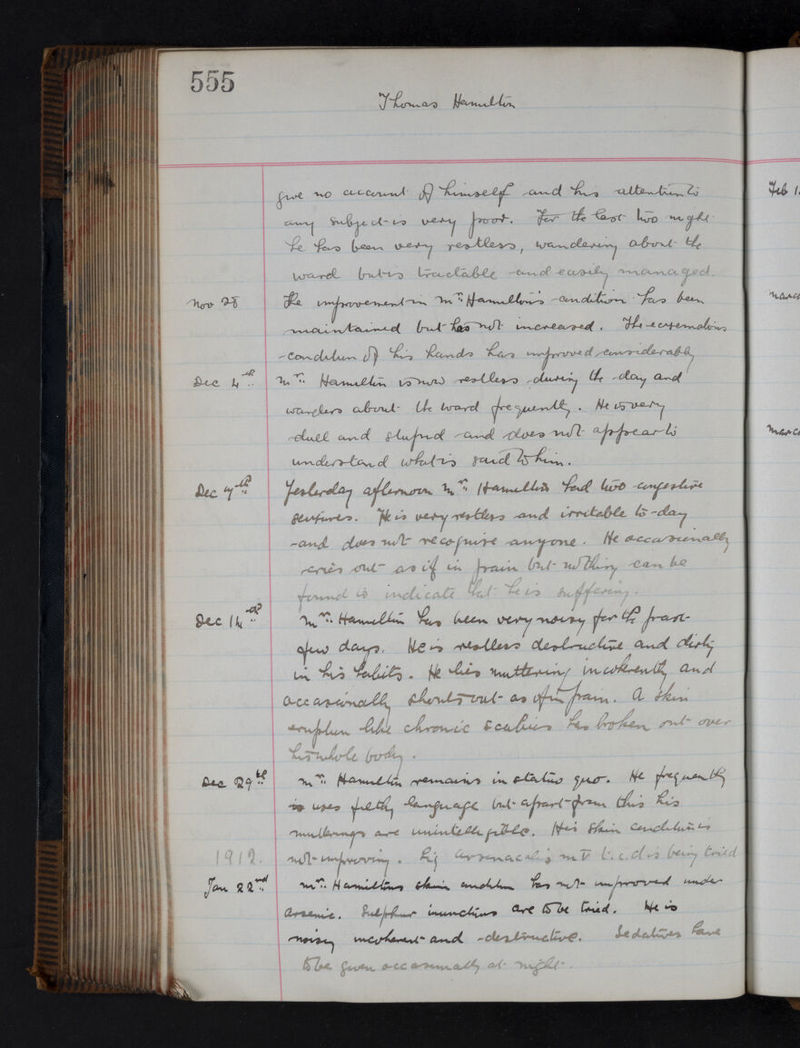 555
Thomas Hamilton
give no account of himself and his attention to
any subject is very poor. For the last two night
he has been very restless, wandering about the
ward but is tractable and easily managed.
Nov 28 The improvement in Mr. Hamilton's condition has been
maintained but has not increased. The eczematous
condition of his hands has improved considerably
Dec 4th Mr. Hamilton is now restless during the day and
wanders about the ward frequently. He is very
dull and stupid and does not appear to
understand what is said to him.
Dec 7th Yesterday afternoon Mr. Hamilton had two congestive
seizures. He is very restless and irritable to-day
and does not recognise anyone. He occasionally
cries out as if in pain but nothing can be
found to indicate that he is suffering.
Dec 14th Mr. Hamilton has been very noisy for the past
few days. He is restless destructive and dirty
in his habits. He lies muttering incoherently and
occasionally shouts out as if in pain. A skin
eruption like chronic scabies has broken out over
his whole body.
Dec 29th Mr. Hamilton remains in statuo quo. He frequently
is uses filthy language but apart from this his
mutterings are unintelligible. His skin condition is
1912. not improving. Liq arsenicalis m v t.c.d. is being tried
Jan 22nd Mr. Hamiltons skin condition has not improved under
arsenic. Sulphur inunctions are to be tried. He is
noisy incoherent and destructive. Sedatives have
to be given occasionally at night.
Feb 1
March